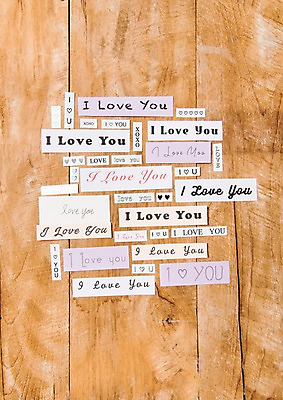 I
♡
U
I Love You
XOXO
I ♡ YOU
XOXO
I Love You
I Love You
I Love You
LOVE
♥♥♥
LOVE
love you
I Love You
I ♡ U
love you ♥♥
I Love You
love you
I Love You
I Love You
I ♡ U
I LOVE YOU
I
♡
YOU
I Love you
I Love You
I ♡ U
I ♡ YOU
I Love You